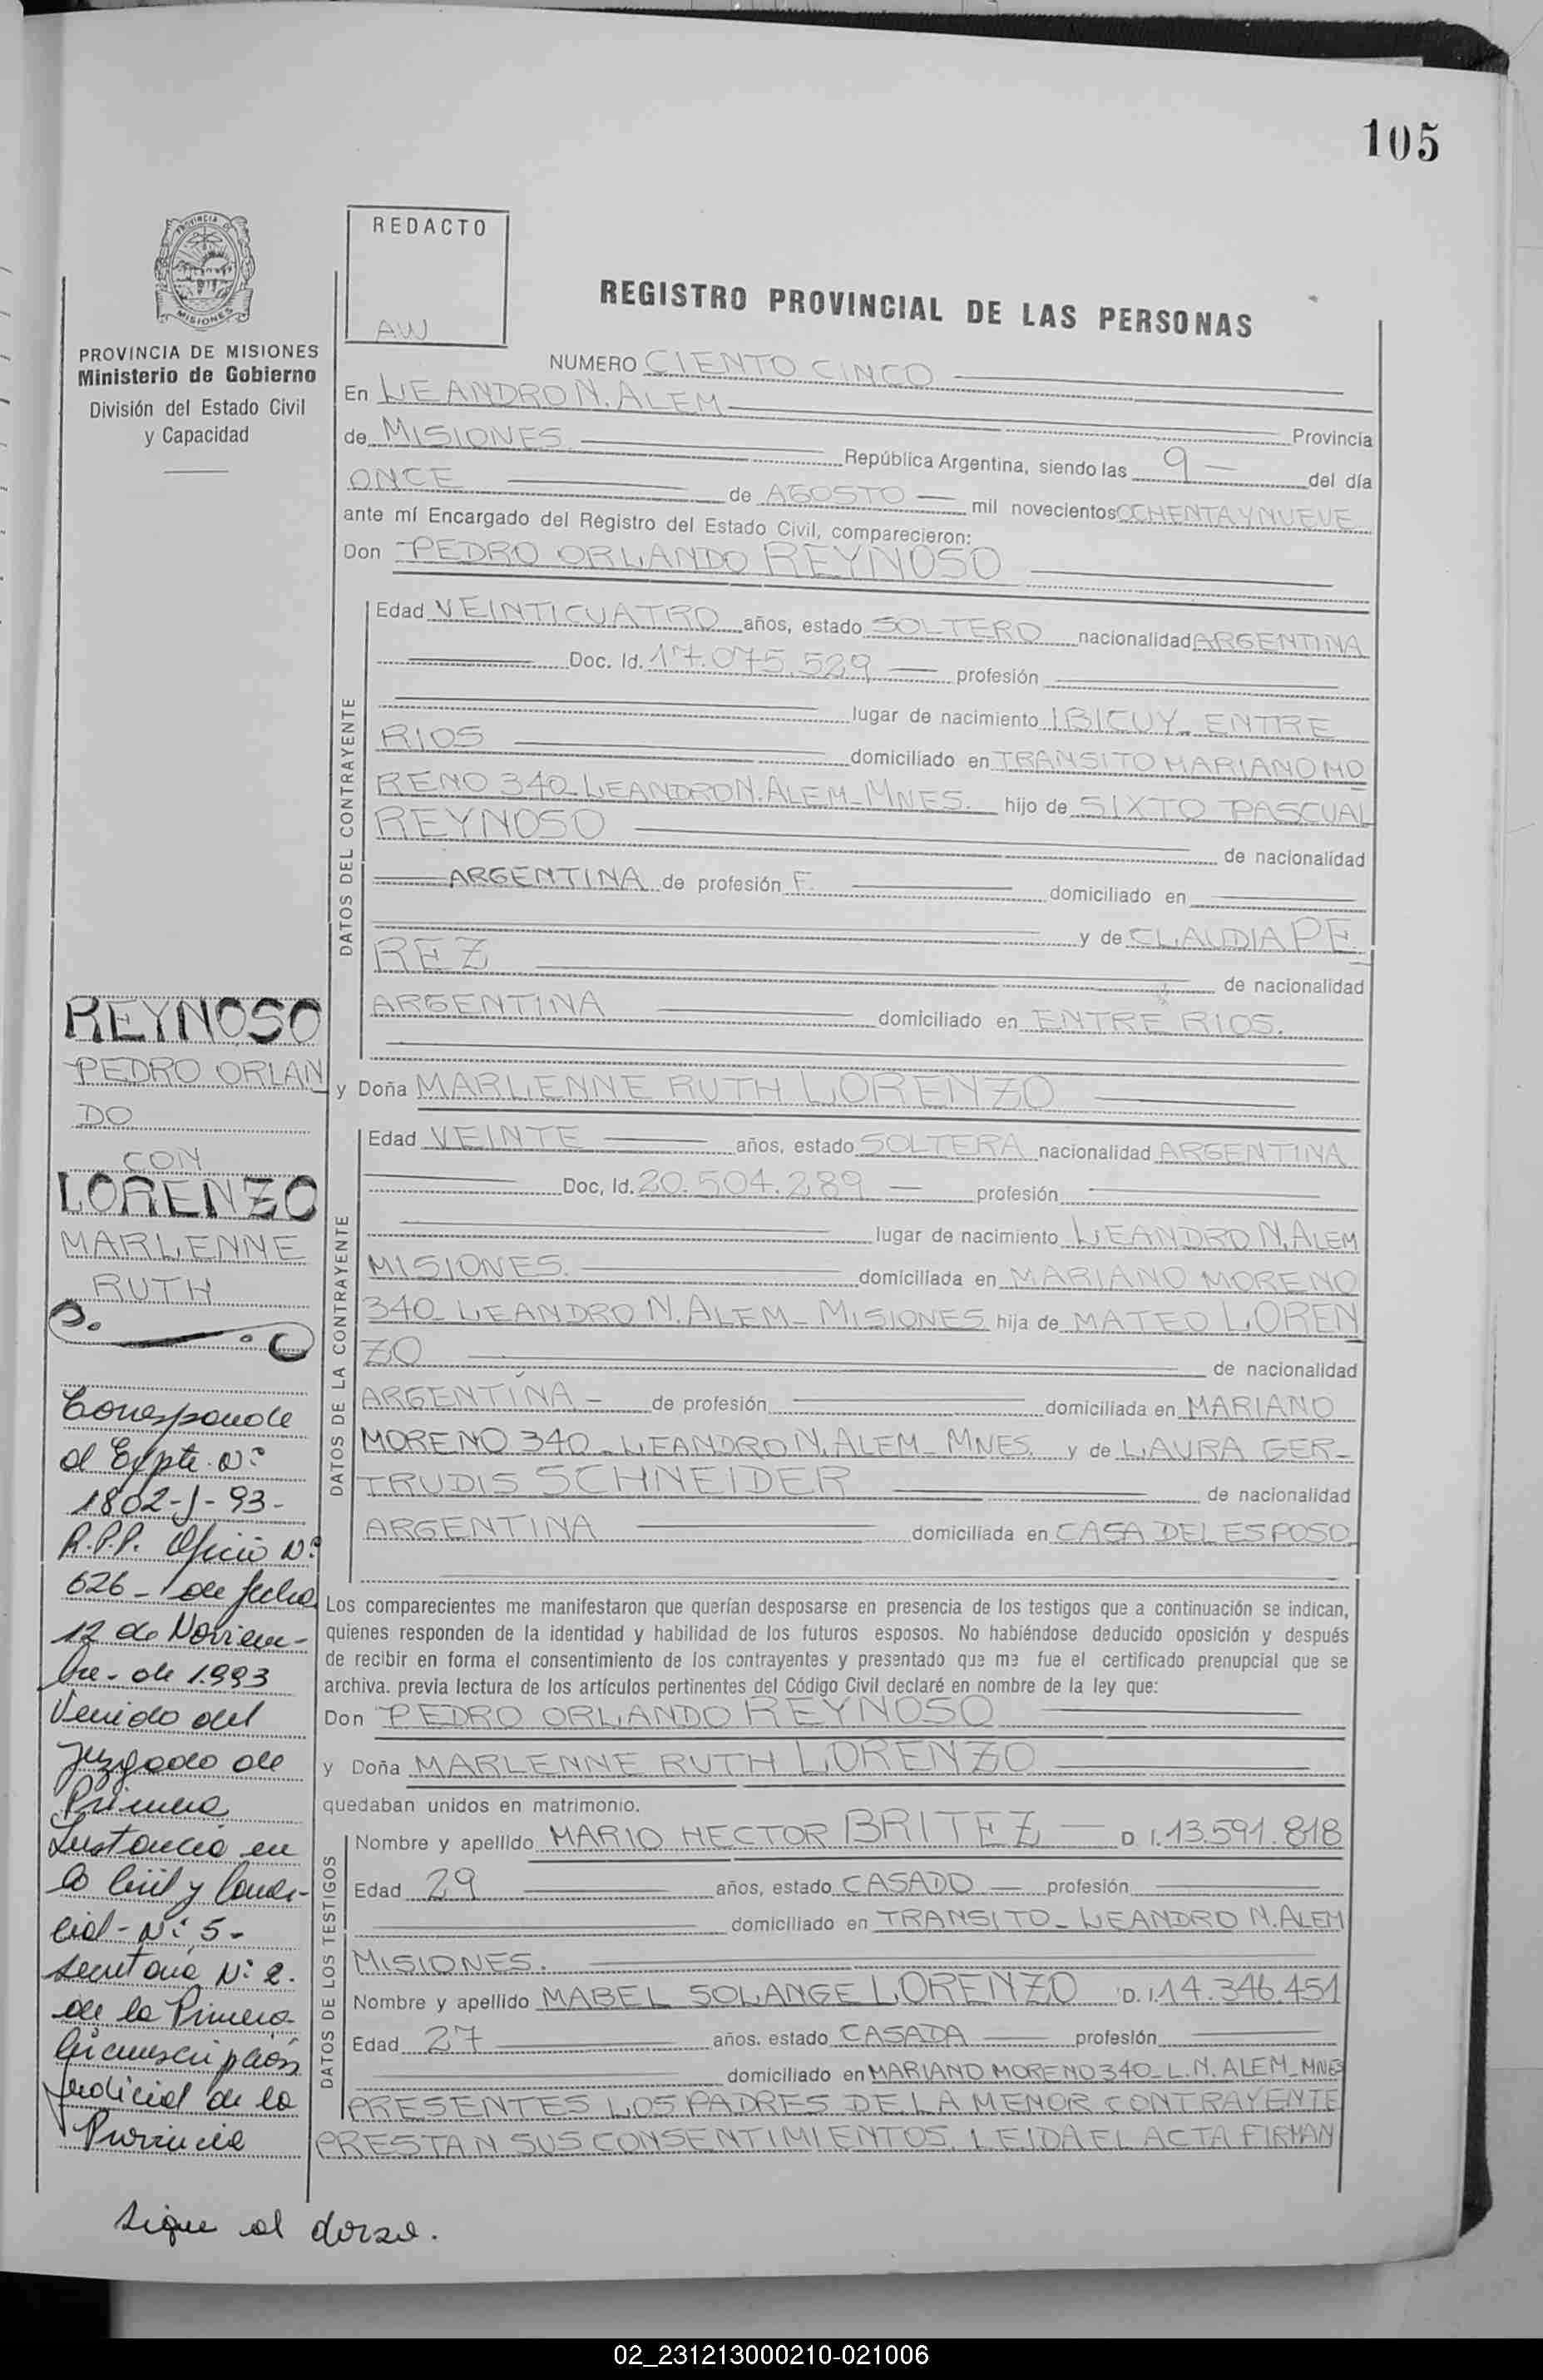 105
PROVINCIA DE
MISIONES
PROVINCIA DE MISIONES
Ministerio de Gobierno
División del Estado Civil
y Capacidad
REDACTO
AW
REGISTRO PROVINCIAL DE LAS PERSONAS
NUMERO CIENTO CINCO
En LEANDRO N. ALEM Provincia
de MISIONES República Argentina, siendo las 9 del día
ONCE de AGOSTO mil novecientos OCHENTA Y NUEVE
ante mí Encargado del Registro del Estado Civil, comparecieron:
Don PEDRO ORLANDO REYNOSO
DATOS DEL CONTRAYENTE
Edad VEINTICUATRO años, estado SOLTERO nacionalidad ARGENTINA
Doc. Id. 17.075.529 profesión
lugar de nacimiento IBICUY_ ENTRE
RIOS domiciliado en TRANSITO MARIANO MO
RENO 340_LEANDRO N. ALEM_MNES. hijo de SIXTO PASCUAL
REYNOSO de nacionalidad
ARGENTINA de profesión F. domiciliado en
y de CLAUDIA PE
REZ de nacionalidad
ARGENTINA domiciliado en ENTRE RIOS.
y Doña MARLENNE RUTH LORENZO
DATOS DE LA CONTRAYENTE
Edad VEINTE años, estado SOLTERA nacionalidad ARGENTINA
Doc, Id. 20.504.289 profesión
lugar de nacimiento LEANDRO N. ALEM
MISIONES. domiciliada en MARIANO MORENO
340_LEANDRO N. ALEM_MISIONES hija de MATEO LOREN
ZO de nacionalidad
ARGENTINA de profesión domiciliada en MARIANO
MORENO 340_LEANDRO N. ALEM_MNES. y de LAURA GER-
TRUDIS SCHNEIDER de nacionalidad
ARGENTINA domiciliada en CASA DEL ESPOSO
Los comparecientes me manifestaron que querían desposarse en presencia de los testigos que a continuación se indican,
quienes responden de la identidad y habilidad de los futuros esposos. No habiéndose deducido oposición y después
de recibir en forma el consentimiento de los contrayentes y presentado que me fue el certificado prenupcial que se
archiva. previa lectura de los artículos pertinentes del Código Civil declaré en nombre de la ley que:
Don PEDRO ORLANDO REYNOSO
y Doña MARLENNE RUTH LORENZO
quedaban unidos en matrimonio.
DATOS DE LOS TESTIGOS
Nombre y apellido MARIO HECTOR BRITEZ D I. 13.591.818
Edad 29 años, estado CASADO profesión
domiciliado en TRANSITO_LEANDRO N. ALEM
MISIONES.
Nombre y apellido MABEL SOLANGE LORENZO D. I. 14.346.451
Edad 27 años. estado CASADA profesión
domiciliado en MARIANO MORENO 340_L. N. ALEM_MNES
PRESENTES LOS PADRES DE LA MENOR CONTRAYENTE
PRESTAN SUS CONSENTIMIENTOS. LEIDA EL ACTA FIRMAN
REYNOSO
PEDRO ORLAN
DO
CON
LORENZO
MARLENNE
RUTH
Corresponde
al Expte. Nº
1802-J-93-
R.P.P. Oficio Nº
626- de fecha
12 de Noviem-
bre- de 1.993
Venido del
Juzgado de
Primera
Instancia en
lo Civil y Comer-
cial- Nº 5-
Secretaria Nº 2.
de la Primera
Circunscripción
Judicial de la
Provincia
Sigue al dorso.
02_231213000210-021006